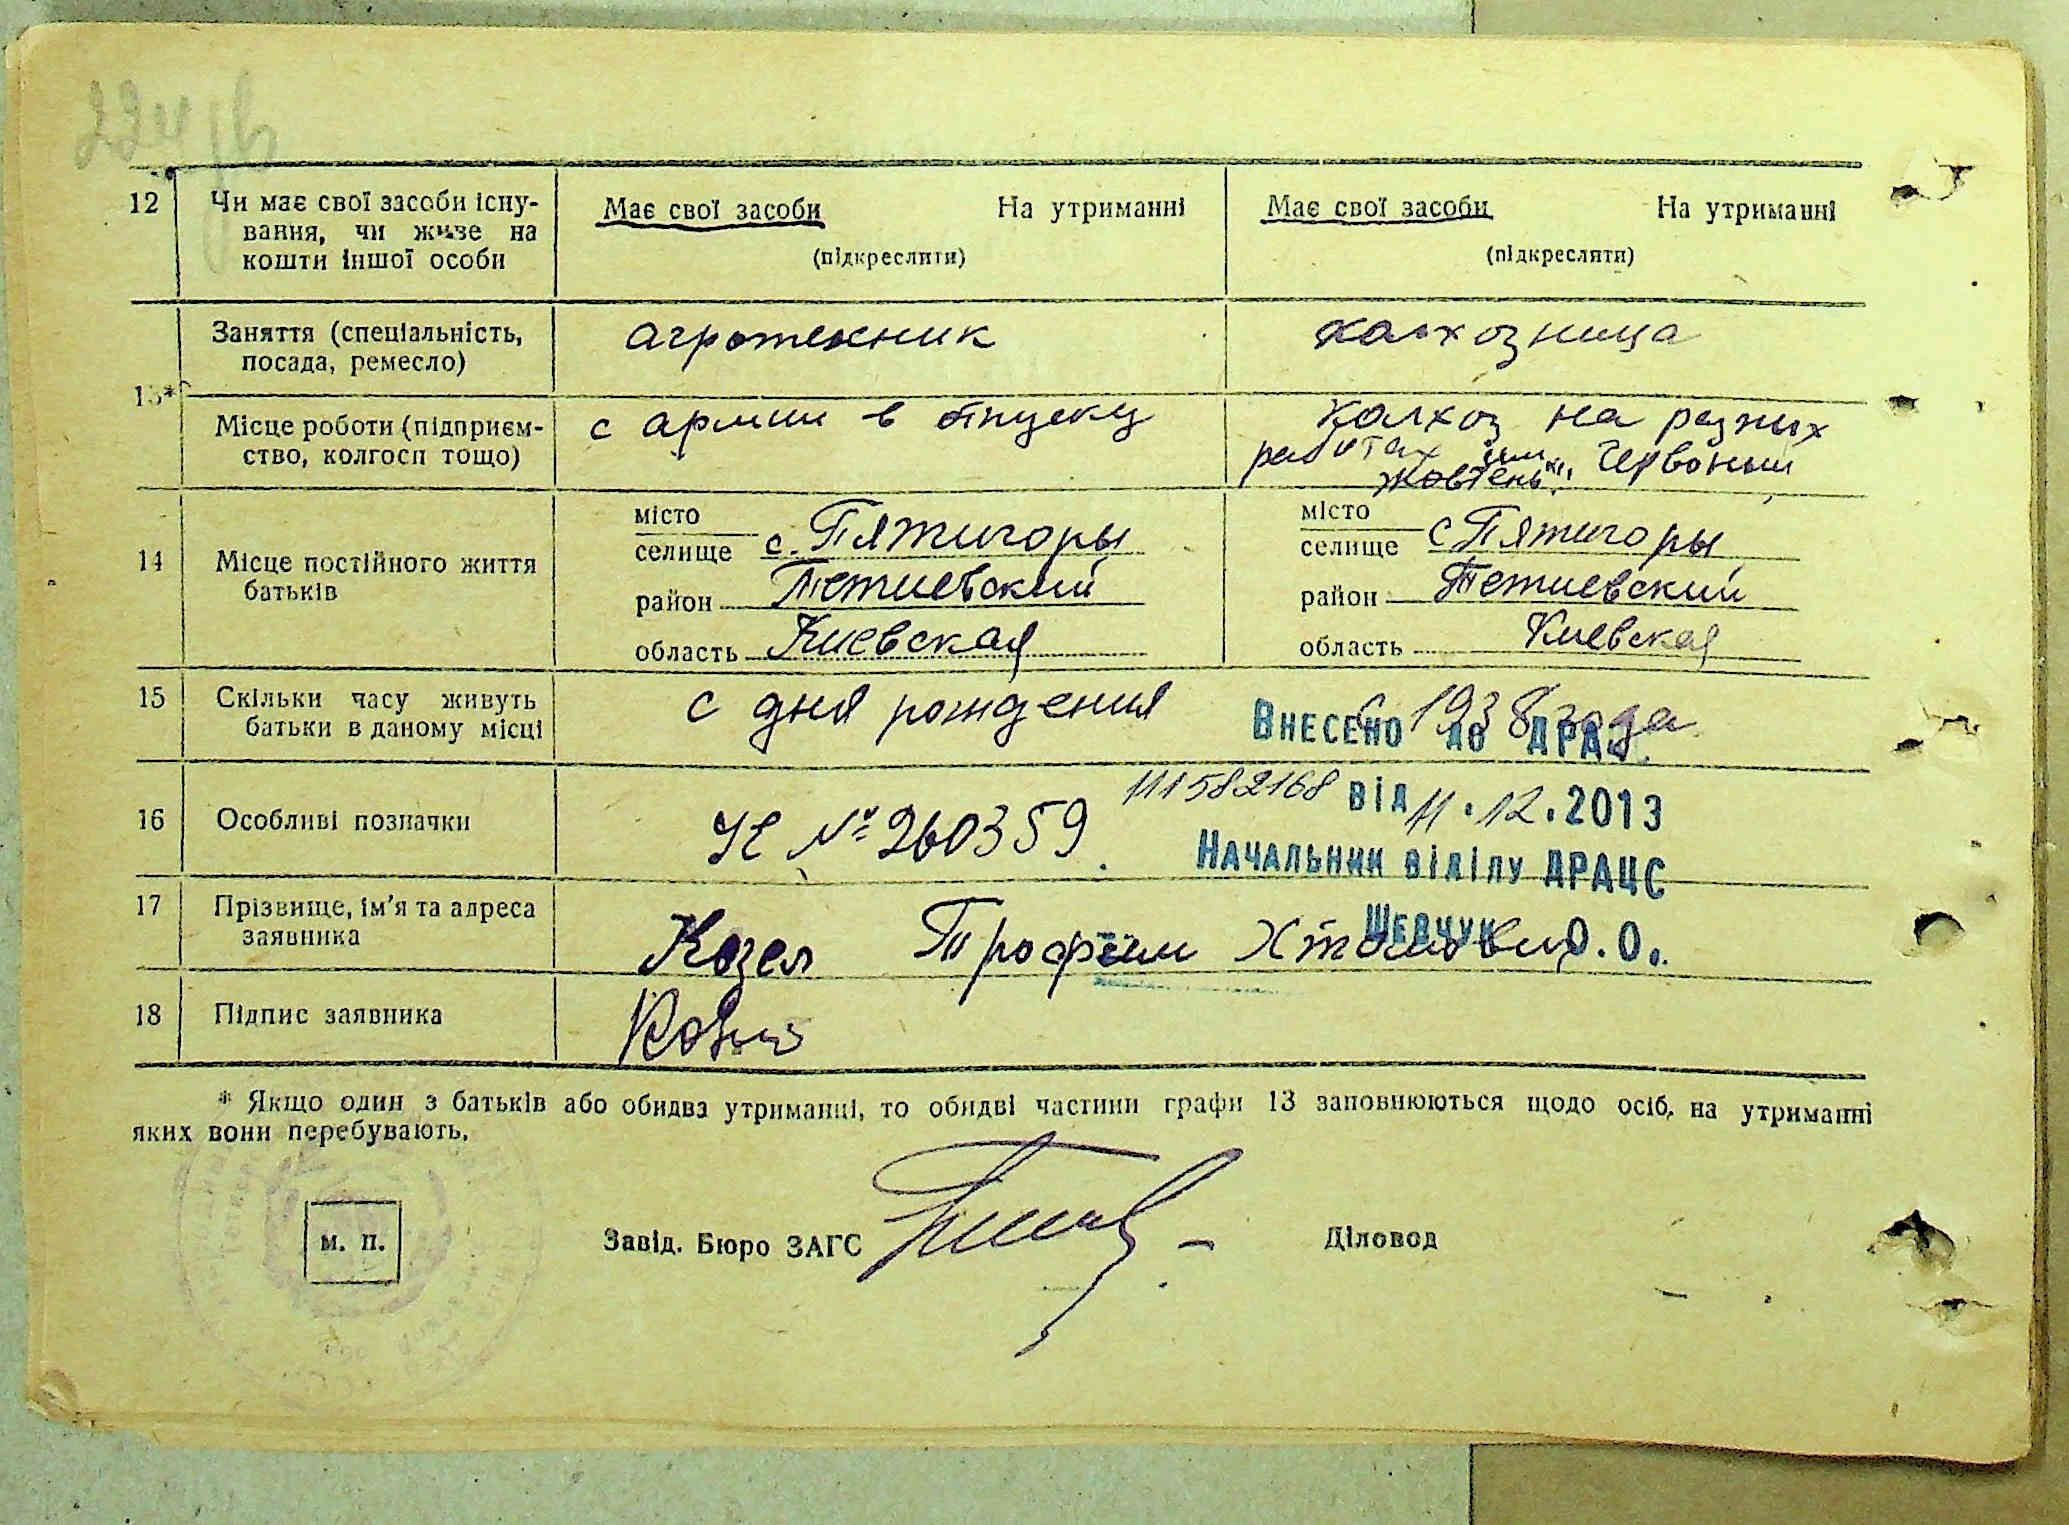 12 Чи має свої засоби існу- Має свої засоби На утриманні Має свої засоби На утриманні
вання, чи живе на
кошти іншої особи (підкреслити) (підкреслити)
Заняття (спеціальність, агротехник колхозница
посада, ремесло)
13*
Місце роботи (підприєм- с армии в отпуску колхоз на разных
ство, колгосп тощо) работах им. "Червоный
жовтень"
14 Місце постійного життя
батьків
місто місто
селище с. Пятигоры селище с Пятигоры
район Тетиевский район Тетиевский
область Киевская область Киевская
15 Скільки часу живуть с дня рождения с 1938 года
батьки в даному місці
Внесено до ДРАЦ
16 Особливі позначки № 260359
від 11.12.2013
Начальник відділу ДРАЦС
Шевчук О.О.
17 Прізвище, ім'я та адреса Козел Трофим
заявника
18 Підпис заявника
* Якщо один з батьків або обидва утриманці, то обидві частини графи 13 заповнюються щодо осіб, на утриманні
яких вони перебувають.
м. п. Завід. Бюро ЗАГС Діловод